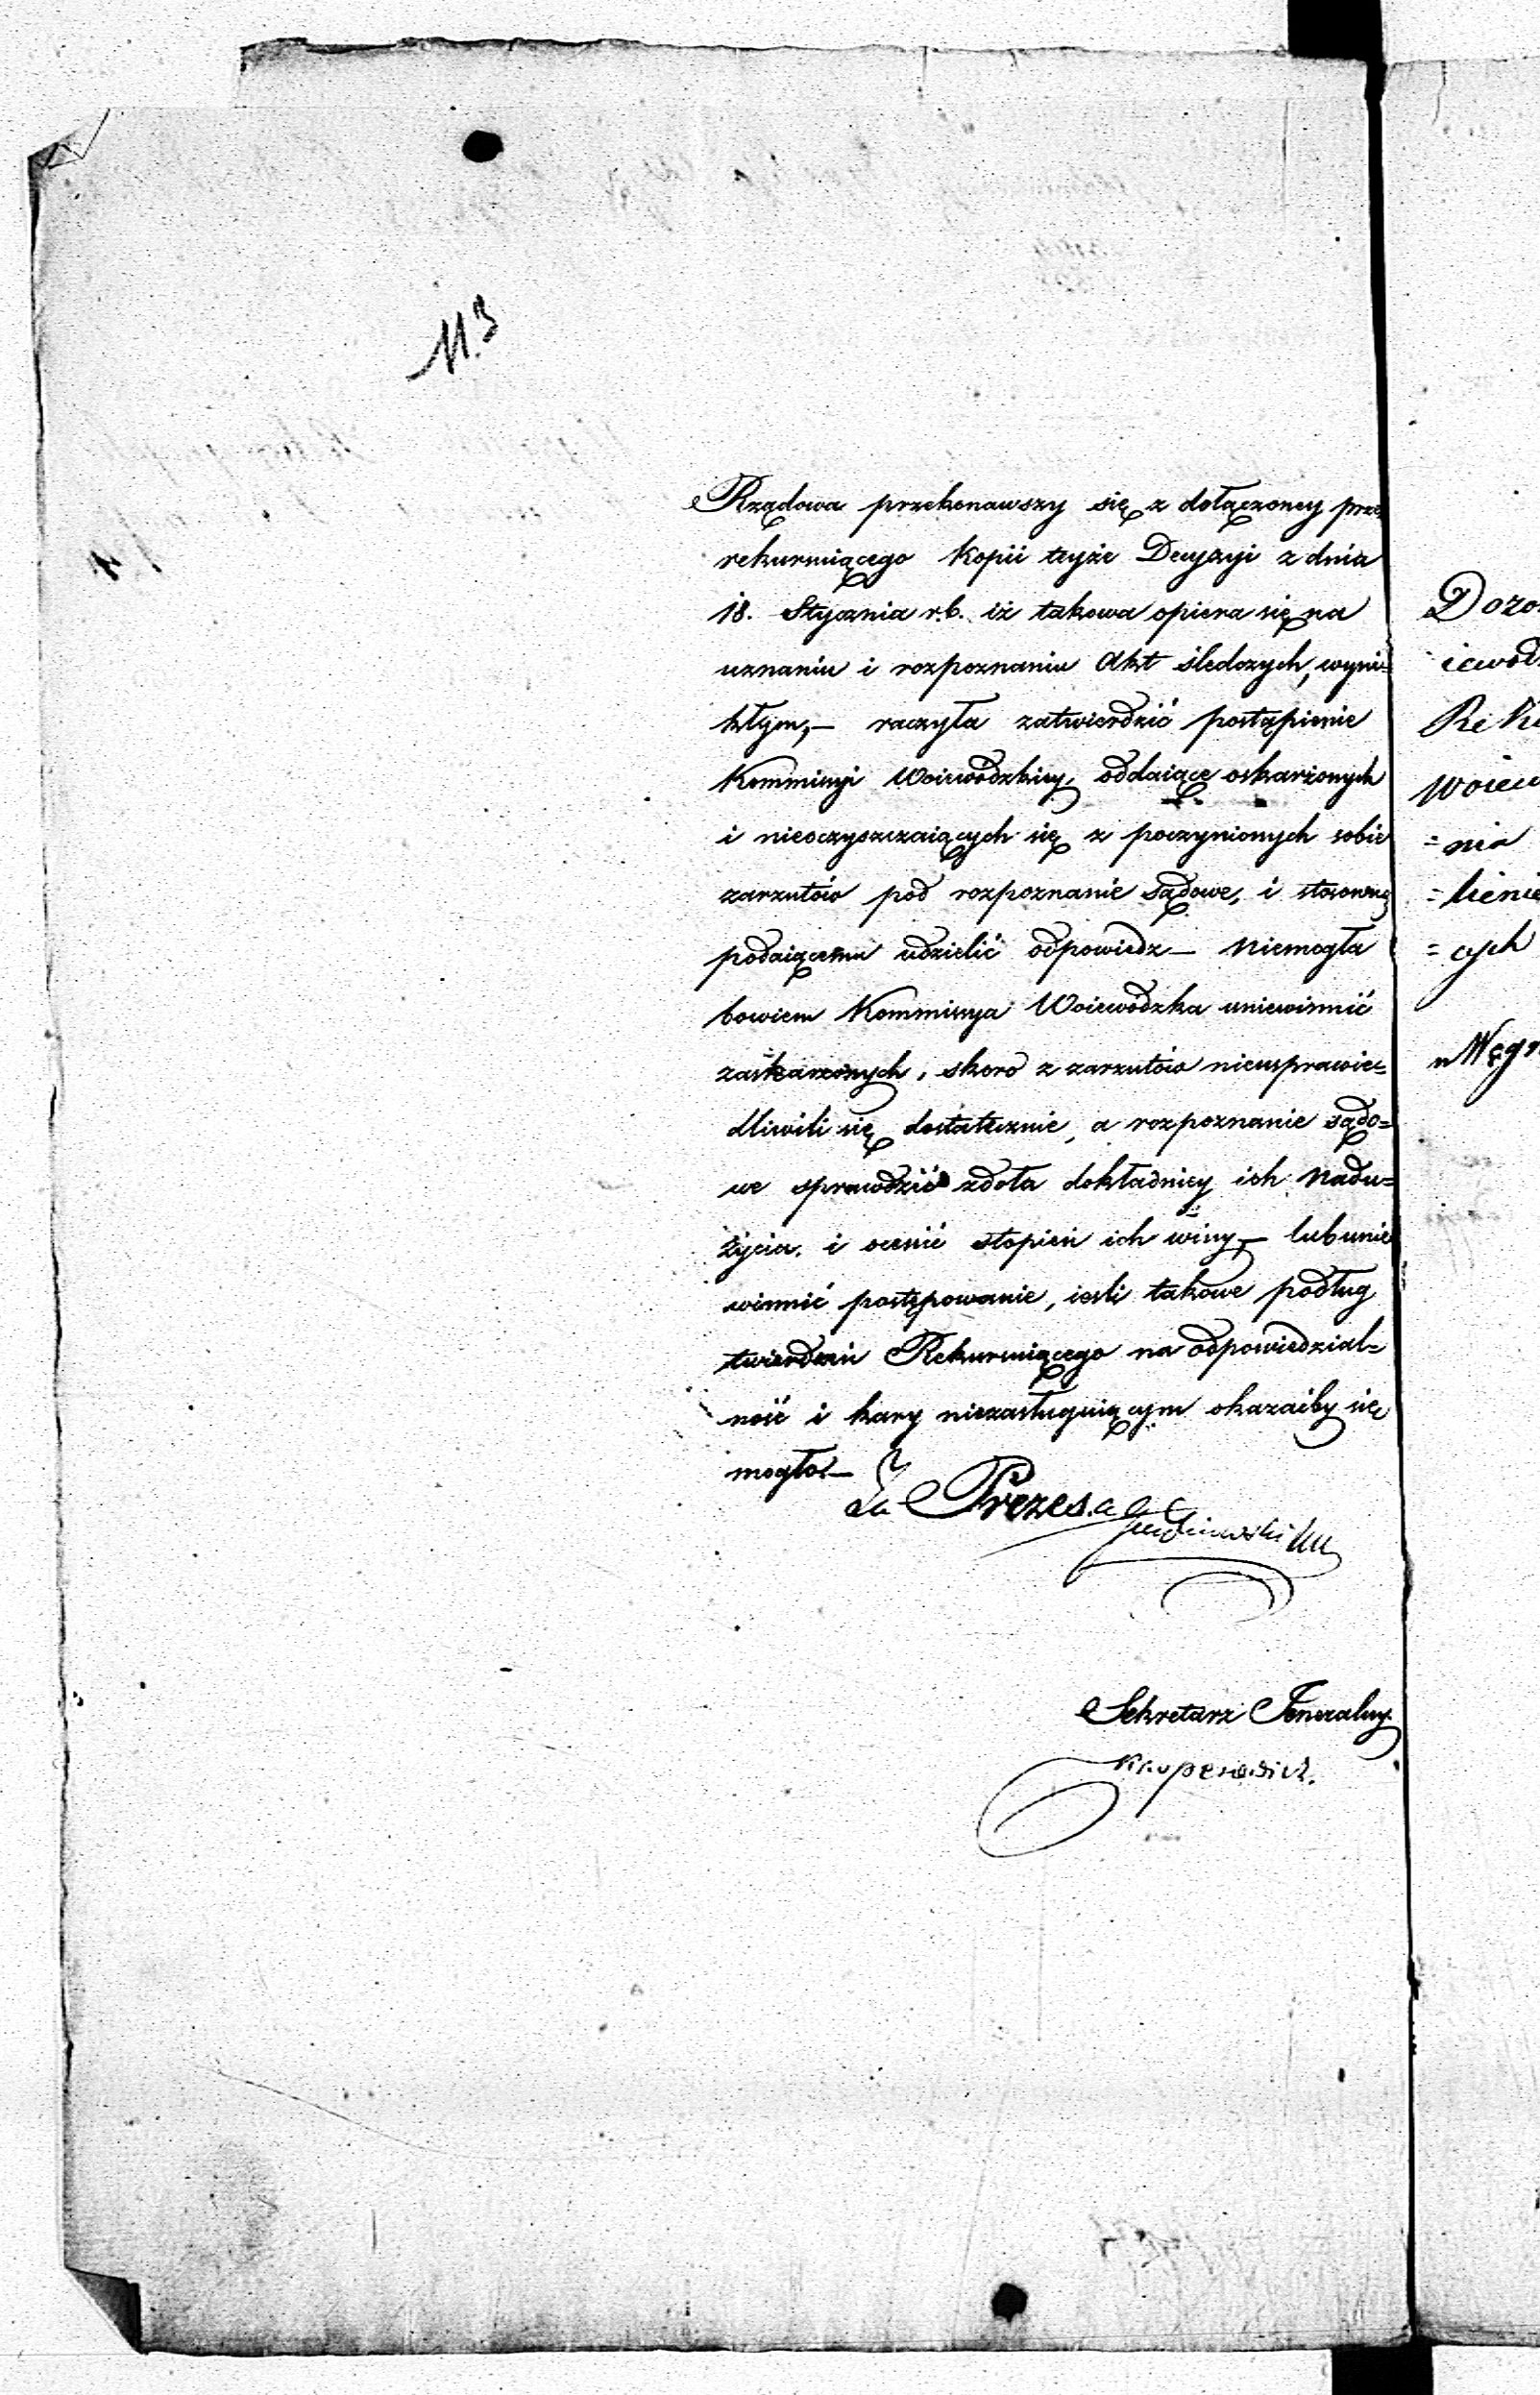 Rządowa przekonawszy się z dołączoney przez
rekurruiącego Kopii teyże Decyzyi z dnia
18. Stycznia r.b. iż takowa opiera się na
uznaniu i rozpoznaniu Akt śledczych, wyni=
kłym, — raczyła zatwierdzić postąpienie
Kommissyi Woiewodzkiey, oddaiące oskarżonych
i nieoczyszczaiących się z poczynionych sobie
zarzutów pod rozpoznanie Sądowe, i stosowną
podaiącemu udzielić odpowiedz — Niemogła
bowiem Kommissya Woiewodzka uniewinnić
zaskarżonych, skoro z zarzutów nieusprawie=
dliwili się dostatecznie, a rozpoznanie sądo=
we sprawdzić zdoła dokładniey ich nadu=
życia. i ocenić stopień ich winy, — lub unie
winnić postępowanie, iesli takowe podług
twierdzeń Rekurruiącego na odpowiedzial=
ność i kary niezasługuiącym okazaćby się
mogło. —
Za Prezesa
Sekretarz Jeneralny
Dozo
iewod
Woiew
= nia
= lienie
= cych